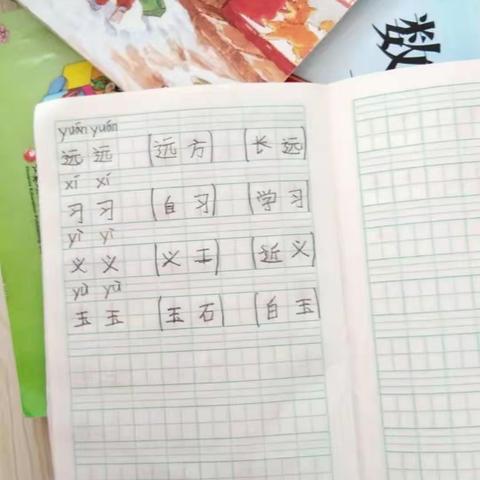 数
yuǎn yuǎn
远 远 (远 方) (长 远)
xí xí
习 习 (自 习) (学 习)
yì yì
义 义 (义 工) (近 义)
yù yù
玉 玉 (玉 石) (白 玉)